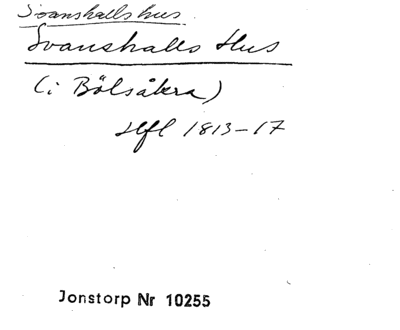 Svanshallshus
Svanshalls Hus
(i Bölsåkra)
Hfl 1813-17
Jonstorp Nr 10255